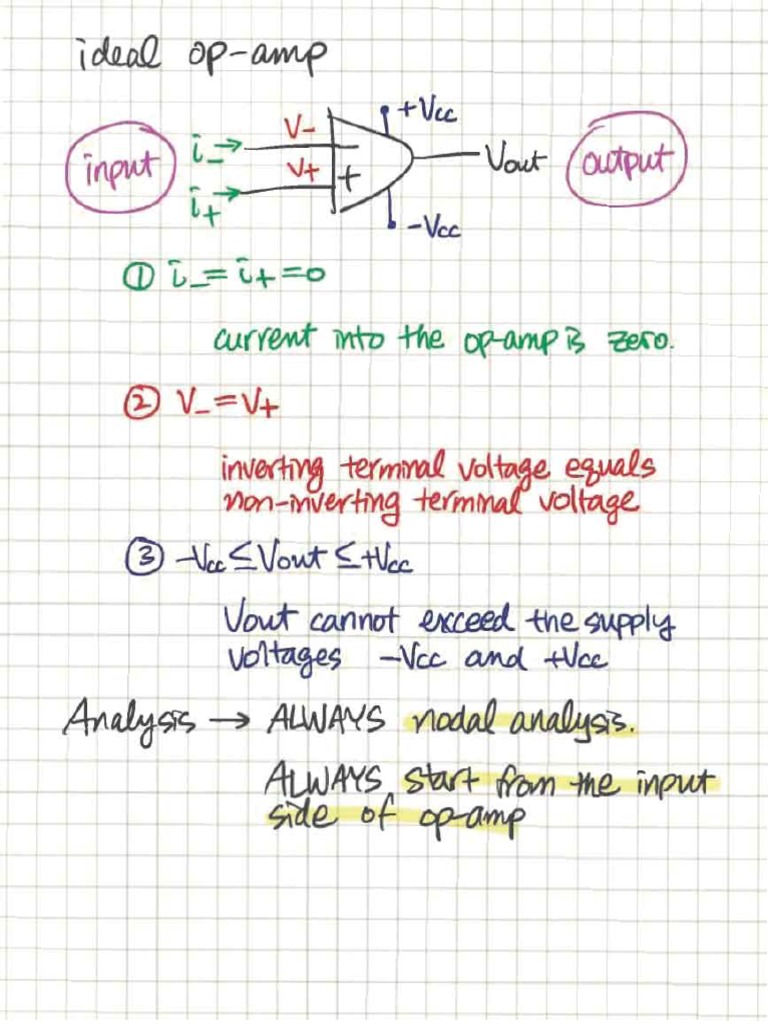 ideal op-amp
V- +Vcc
input i- V+ - Vout output
i+ +
-Vcc
① i-=i+=0
current into the op-amp is zero.
② V-=V+
inverting terminal voltage equals
non-inverting terminal voltage
③ -Vcc≤Vout≤+Vcc
Vout cannot exceed the supply
voltages -Vcc and +Vcc
Analysis → ALWAYS nodal analysis.
ALWAYS start from the input
side of op-amp